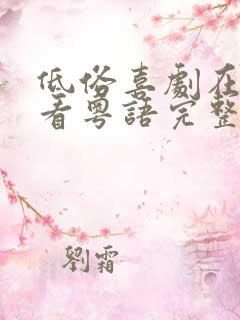 低俗喜劇在
看粵語完整
劉霜